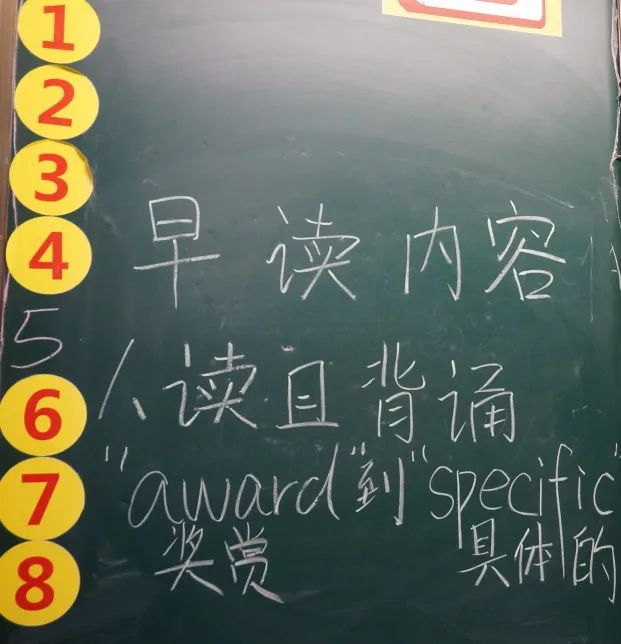 1
2
3
4
早读内容
5
1、读且背诵
6
"award"到"specific"
7
奖赏 具体的
8